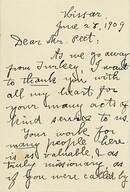 Hissar
June 28, 1909
Dear Mr. Peet,
As we go away
from Turkey I want
to thank you with
all my heart for
your many acts of
kind service to us.
Your work for
many people here
is as valuable & as
truly missionary as
if you were called by